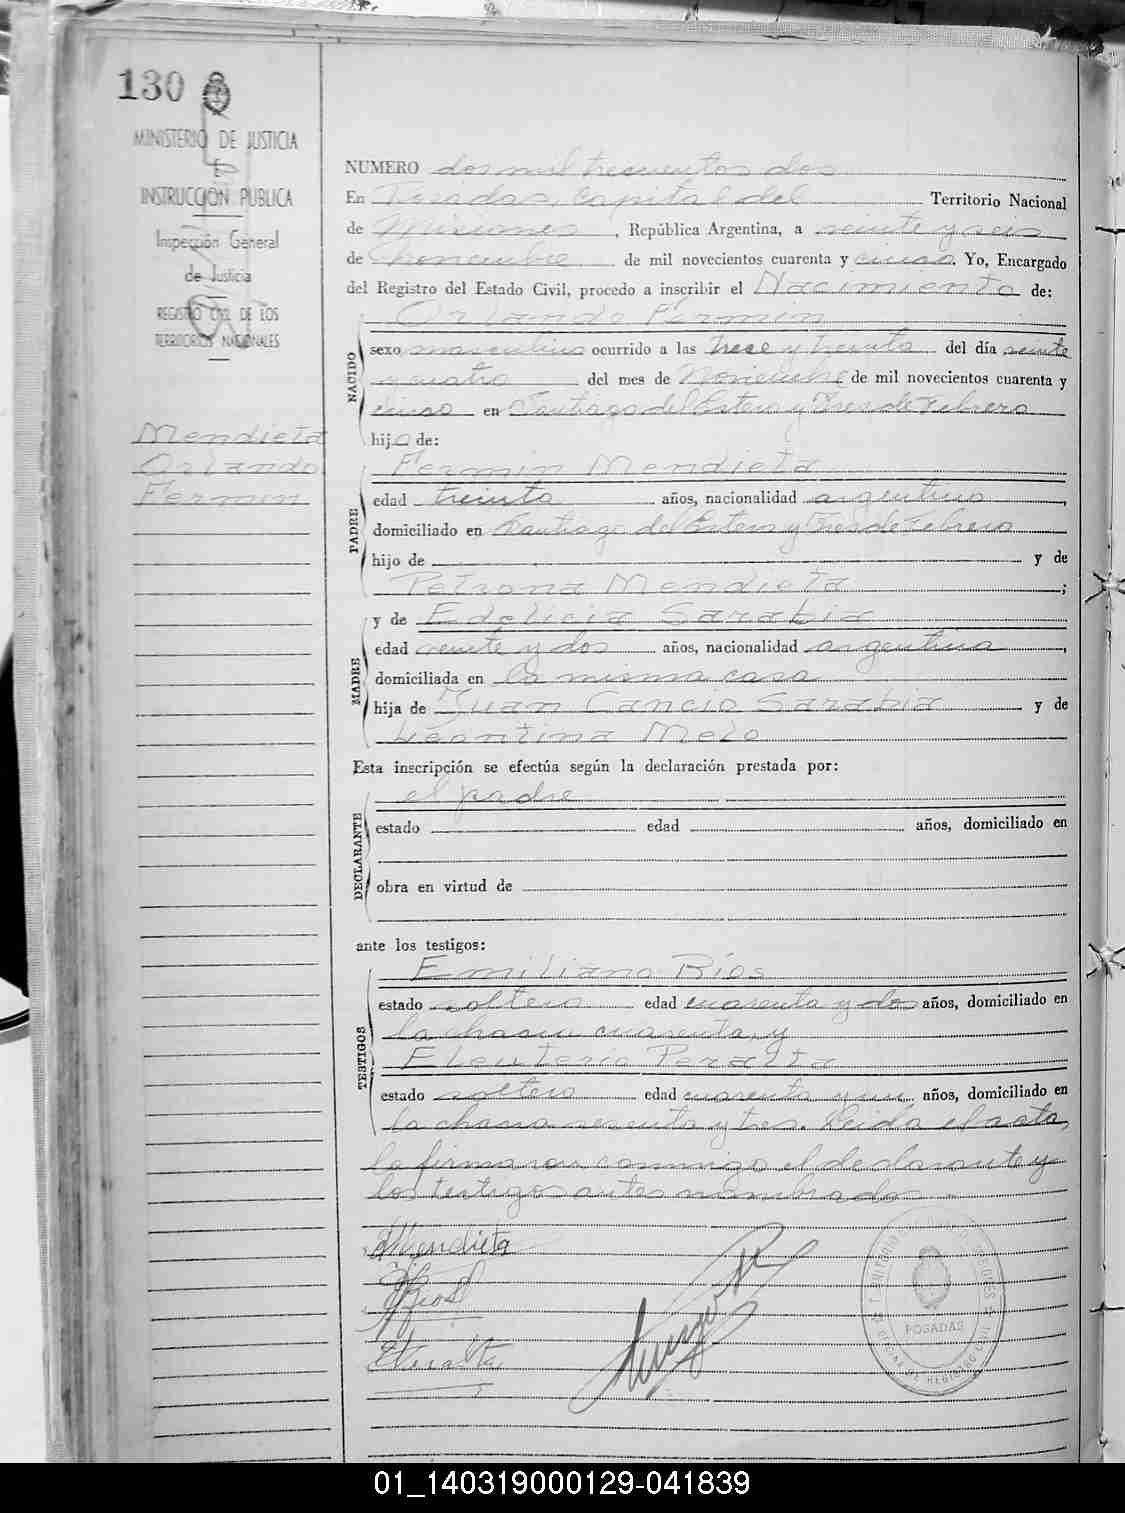 130
MINISTERIO DE JUSTICIA
E
INSTRUCCIÓN PUBLICA
Inspección General
de Justicia
REGISTRO CIVIL DE LOS
TERRITORIOS NACIONALES
Mendieta
Orlando
Fermin
NUMERO dos mil trecientos dos
En Posadas, Capital del Territorio Nacional
de Misiones, República Argentina, a veinte y seis
de Noviembre de mil novecientos cuarenta y cinco. Yo, Encargado
del Registro del Estado Civil, procedo a inscribir el Nacimiento de:
Orlando Fermin
NACIDO
sexo masculino ocurrido a las trece y treinta del día veinte
y cuatro del mes de Noviembre de mil novecientos cuarenta y
cinco en Santiago del Estero y Tres de Febrero
hijo de:
Fermin Mendieta
PADRE
edad treinta años, nacionalidad argentino,
domiciliado en Santiago del Estero y Tres de Febrero
hijo de y de
Petrona Mendieta;
y de Edelicia Sarabia
MADRE
edad veinte y dos años, nacionalidad argentina,
domiciliada en la misma casa
hija de Juan Cancio Sarabia y de
Leontina Melo
Esta inscripción se efectúa según la declaración prestada por:
el padre
DECLARANTE
estado edad años, domiciliado en
obra en virtud de
ante los testigos:
Emiliano Ríos
TESTIGOS
estado soltero edad cuarenta y dos años, domiciliado en
la chacra cuarenta, y
Eleuterio Peralta
estado soltero edad cuarenta y un años, domiciliado en
la chacra sesenta y tres. Leída el acta,
la firmaron conmigo el declarante y
los testigos antes nombrados.
Mendieta
Rios
POSADAS
01_140319000129-041839